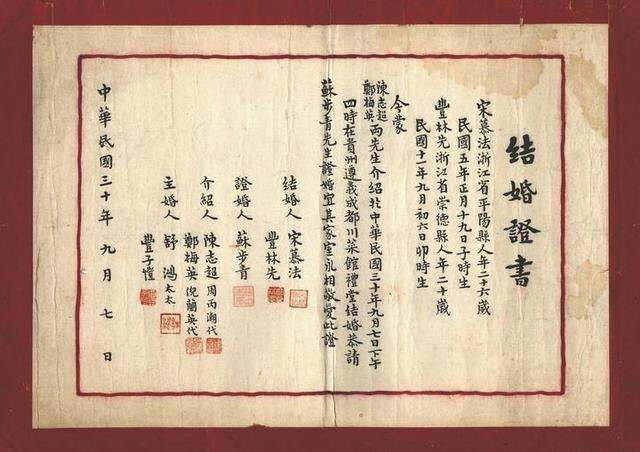 結婚證書
宋慕法浙江省平陽縣人年二十六歲
民國五年正月十九日子時生
豐林先浙江省崇德縣人年二十歲
民國十一年九月初六日卯時生
今蒙
陳志超
鄭梅英兩先生介紹於中華民國三十年九月七日下午
四時在貴州遵義成都川菜館禮堂結婚恭請
蘇步青先生證婚宜其家室永相敬愛此證
結婚人 宋慕法
豐林先
證婚人 蘇步青
介紹人 陳志超 周丙潮代
鄭梅英 倪蘭英代
主婚人 舒鴻太太
豐子愷
中華民國三十年九月七日